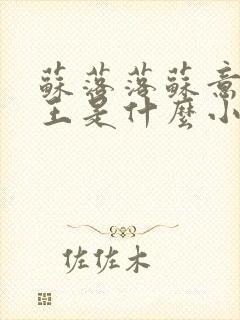 蘇落落蘇意
王是什麼小
佐佐木